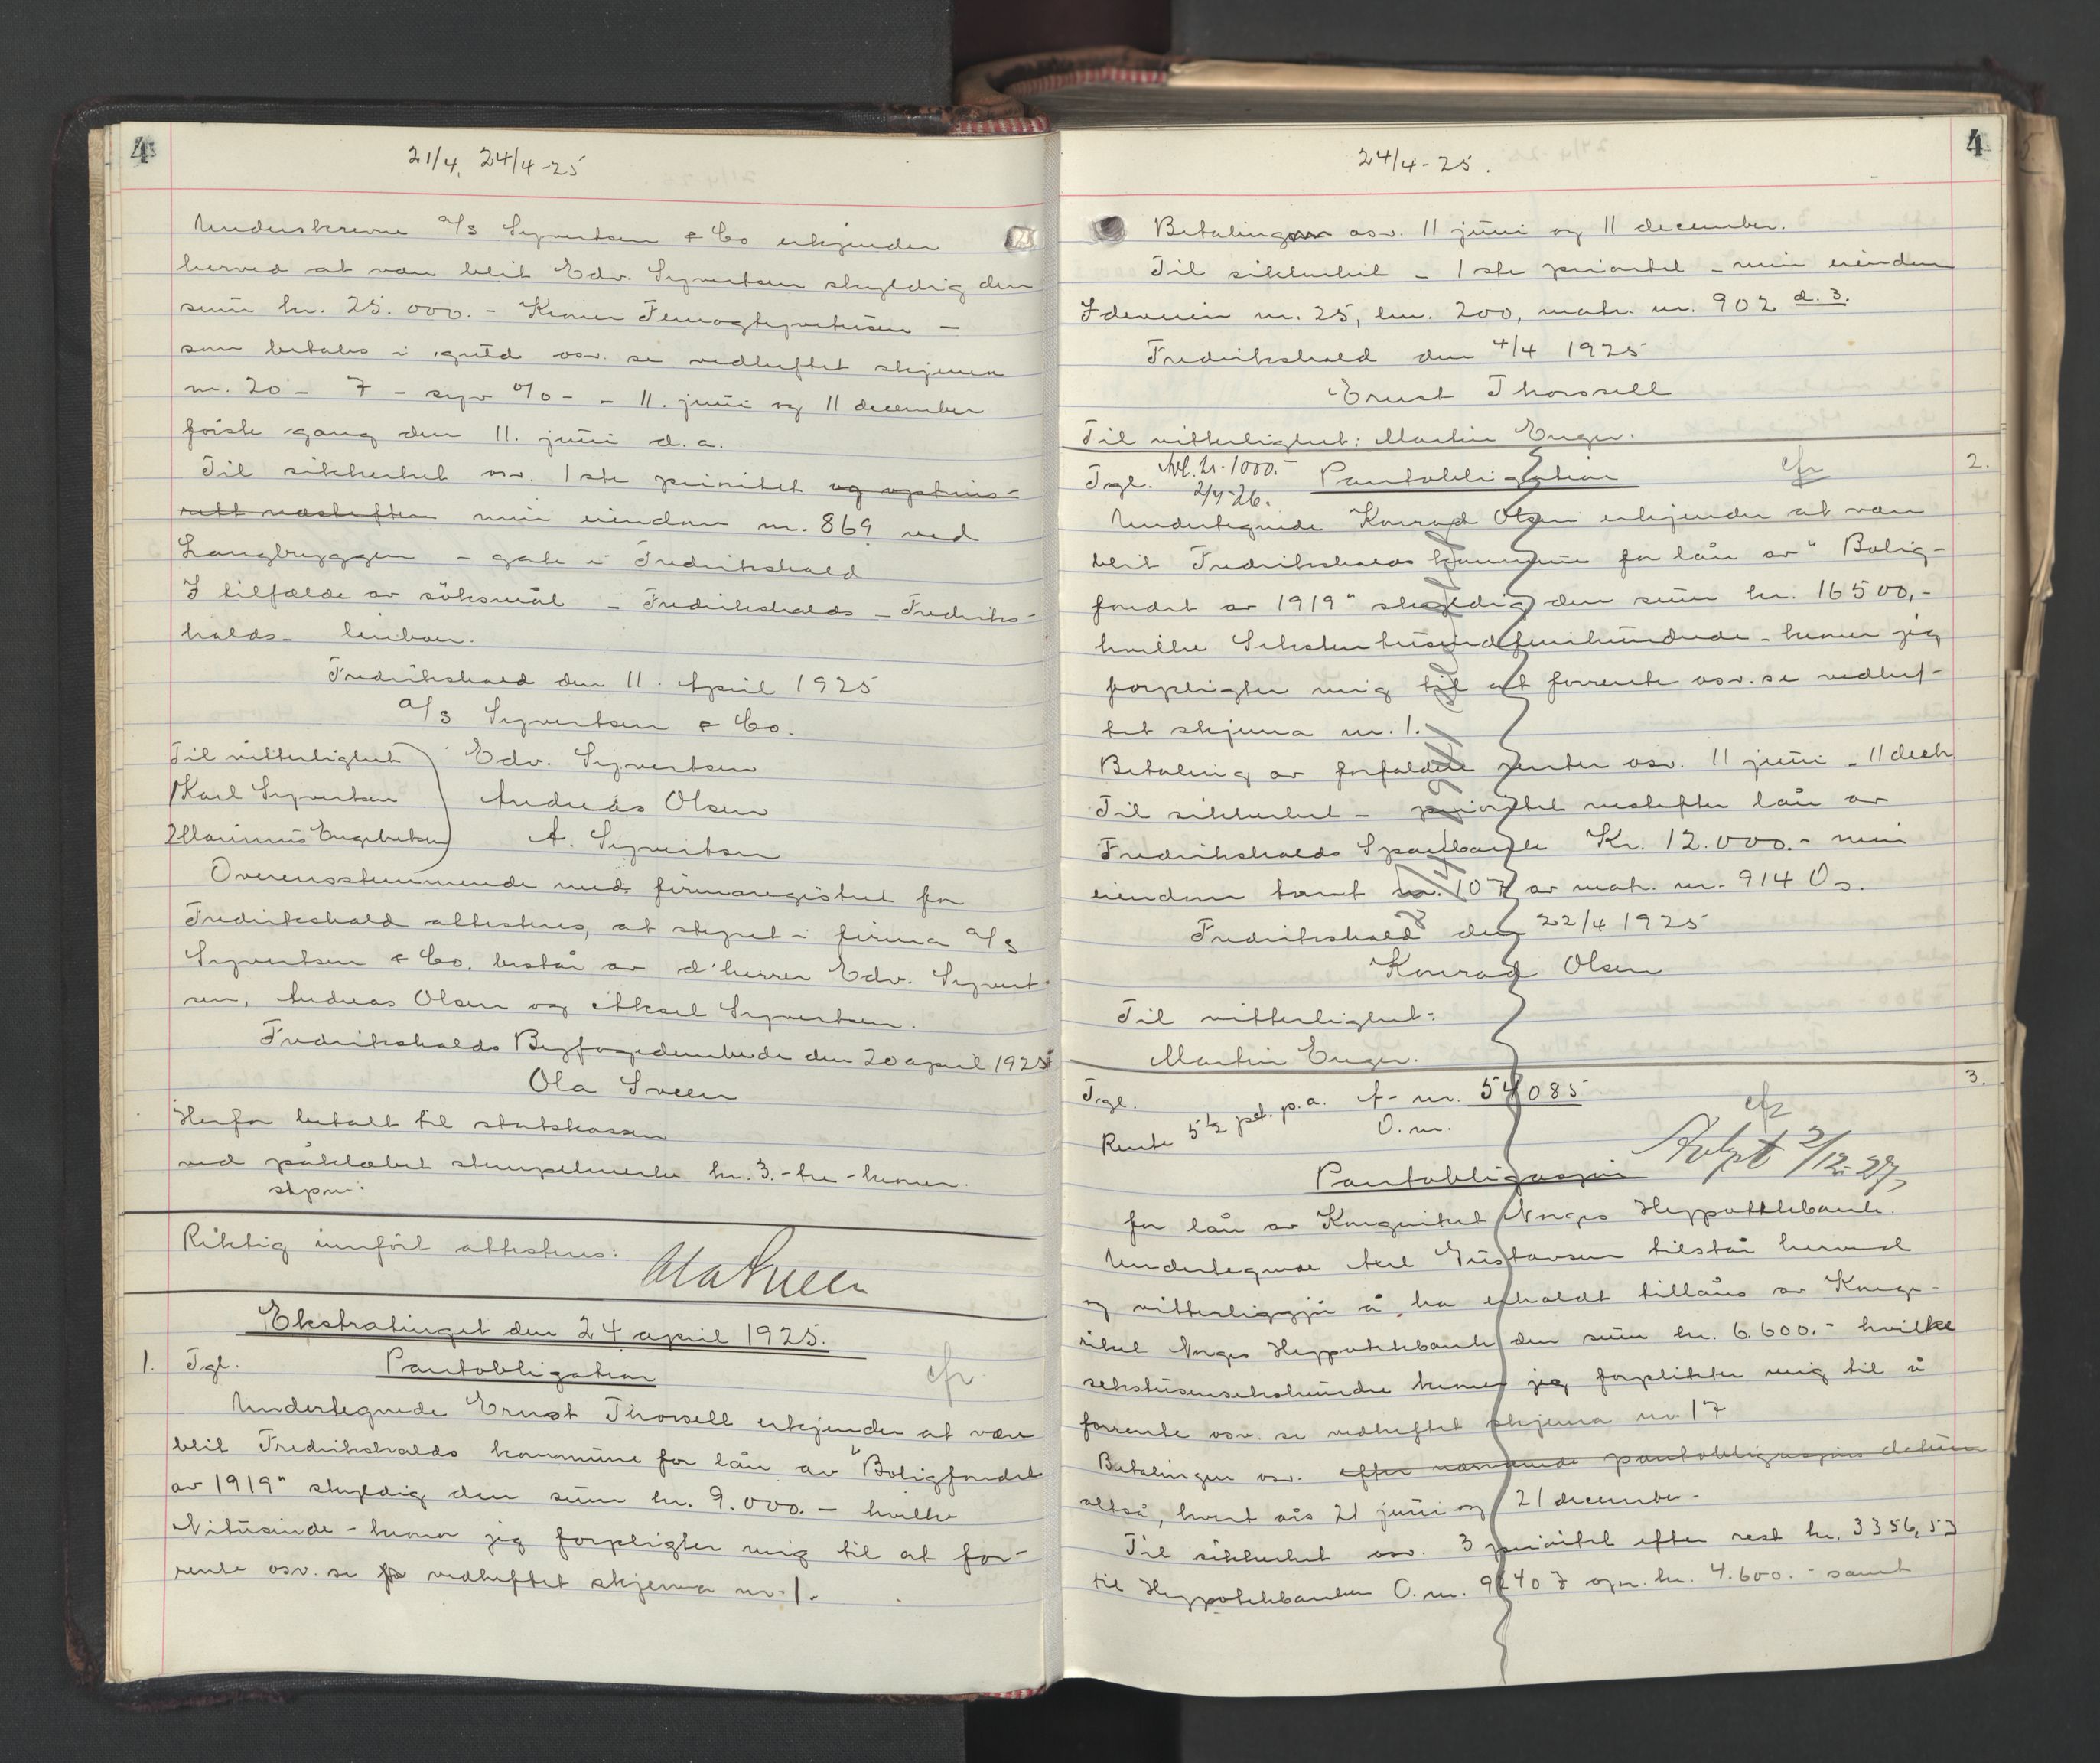 4
21/4, 24/4-25
Underskrevne A/S Syvertsen & Co erkjender
herved at være blit Edv. Syvertsen skyldig den
sum kr. 25.000.- Kroner Femogtyvetusen -
som betales i guld osv. se vedheftet skjema
nr. 20 - 7 - syv % - - 11. juni og 11 december
første gang den 11. juni d.a.
Til sikkerhet osv. 1ste prioritet og optrins-
rett næstefter min eiendom nr. 869 ved
Langbryggen - gate i Fredrikshald
I tilfælde av söksmål - Fredrikshalds - Fredriks-
halds -
Fredrikshald den 11. April 1925
A/S Syvertsen & Co.
Til vitterlighet Edv. Syvertsen
1 Karl Syvertsen Andreas Olsen
2 Marinius Engebretsen A. Syvertsen
Overensstemmende med firmaregistret for
Fredrikshald attesteres, at styret i firma A/S
Syvertsen & Co. består av d'herrer Edv. Syvert-
sen, Andreas Olsen og Aksel Syvertsen.
Fredrikshalds Byfogedembede den 20 april 1925
Ola Sveen
Herfor betalt til statskassen
ved påklæbet stempelmerke kr. 3.- tre - kroner.
stpm.
Riktig innfört attesteres: Ola Sveen
Ekstratinget den 24 april 1925.
1. Tgl. Pantobligation cfr.
Undertegnede Ernst Thorsell erkjender at være
blit Fredrikshalds kommune for lån av "Boligfondet
av 1919" skyldig den sum kr. 9.000.- hvilke
Nitusinde - kroner jeg forpligter mig til at for-
rente osv. se vedheftet skjema nr. 1.
4
24/4-25.
Betalingen osv. 11 juni og 11 december.
Til sikkerhet - 1ste prioritet - min eiendom
Ideveien nr. 25, lnr. 200, matr. nr. 902 d. 3.
Fredrikshald den 4/4 1925
Ernst Thorsell
Til vitterlighet: Martin Enger.
2.
Tgl. Avl. kr. 1000.- Pantobligation cfr
2/9-26.
Undertegnede Konrad Olsen erkjender at være
blit Fredrikshalds kommune for lån av "Bolig-
fondet av 1919" skyldig den sum kr. 16500,-
hvilke Sekstentusindfemhundrede - kroner jeg
forpligter mig til at forrente osv. se vedhef-
tet skjema nr. 1.
Betaling av forfaldne renter osv. 11 juni - 11 decbr.
Til sikkerhet - prioritet næstefter lån av
Fredrikshalds Sparebank Kr. 12.000.- min
eiendom tomt nr. 107 av matr. nr. 914 Os.
Fredrikshald den 22/4 1925
Konrad Olsen
Til vitterlighet:
Martin Enger.
3.
Tgl. A- nr. 54085 cfr
Rente 5 1/2 pct. p.a. O.nr.
Avlyst 2/12-27,
Pantobligasjon
for lån av Kongeriket Norges Hypotekbank.
Undertegnede Axel Gustavsen tilstår herved
og vitterliggjör å ha erholdt tillåns av Konge-
riket Norges Hypotekbank den sum kr. 6.600.- hvilke
sekstusensekshundre kroner jeg forplikter mig til å
forrente osv. se vedheftet skjema nr. 17
Betalingen osv. efter nærværende pantobligasjons datum
altså, hvert års 21 juni og 21 december.
Til sikkerhet osv. 3 prioritet efter rest kr. 3356,53
til Hypotekbanken O.nr. 92407 opr. kr. 4.600.- samt